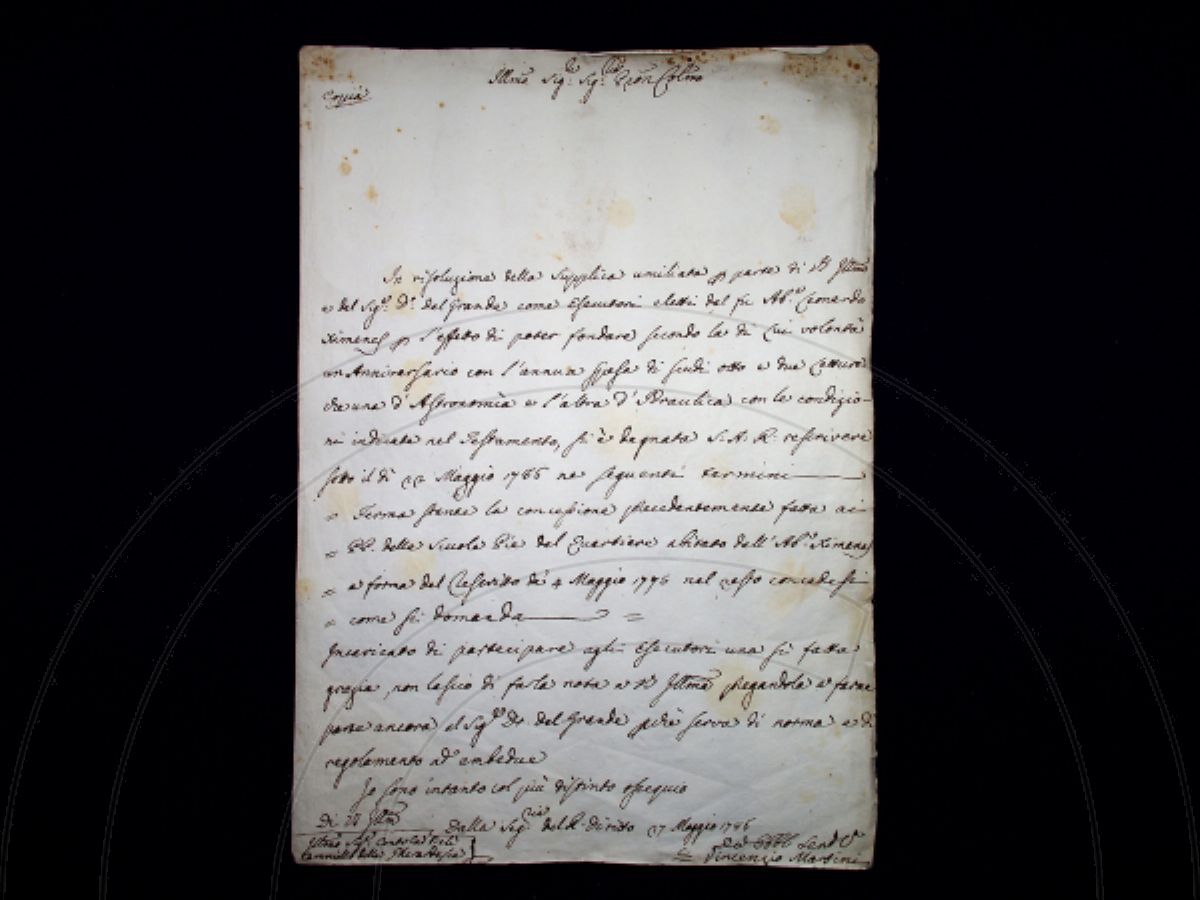 Illmo Sig.re Sig.re Pron Colmo
Copia
In risoluzione della Supplica umiliata p parte di VS Illma
e del Sig.e D.r del Grande come Esecutori eletti del fu Ab.e Leonardo
Ximenes p l'effetto di poter fondare secondo la di lui volontà
un Anniversario con l'annua spesa di scudi otto e due Letture
che una d'Astronomia e l'altra d'Idraulica con le condizio-
ni indicate nel Testamento, si è degnata S. A. R. rescrivere
sotto il dì 22 Maggio 1786 ne seguenti termini
" Ferma stante la concessione precedentemente fatta ai
" PP. delle Scuole Pie del Quartiere abitato dall'Ab.e Ximenes
" a forma del Rescritto de 4 Maggio 1776 nel resto concedesi
" come si domanda =
Incaricato di partecipare agli Esecutori una sì fatta
grazia, non lascio di farla nota a VS Illma pregandola a farne
parte ancora al Sig.e Dr. del Grande pchè serva di norma e di
regolamento ad ambedue
Io sono intanto col più distinto ossequio
Di VS Illma
Dalla Seg.ria del R. Diritto 27 Maggio 1786
Illmo Sig.
Cammillo della Gherardesca
Vincenzio Martini